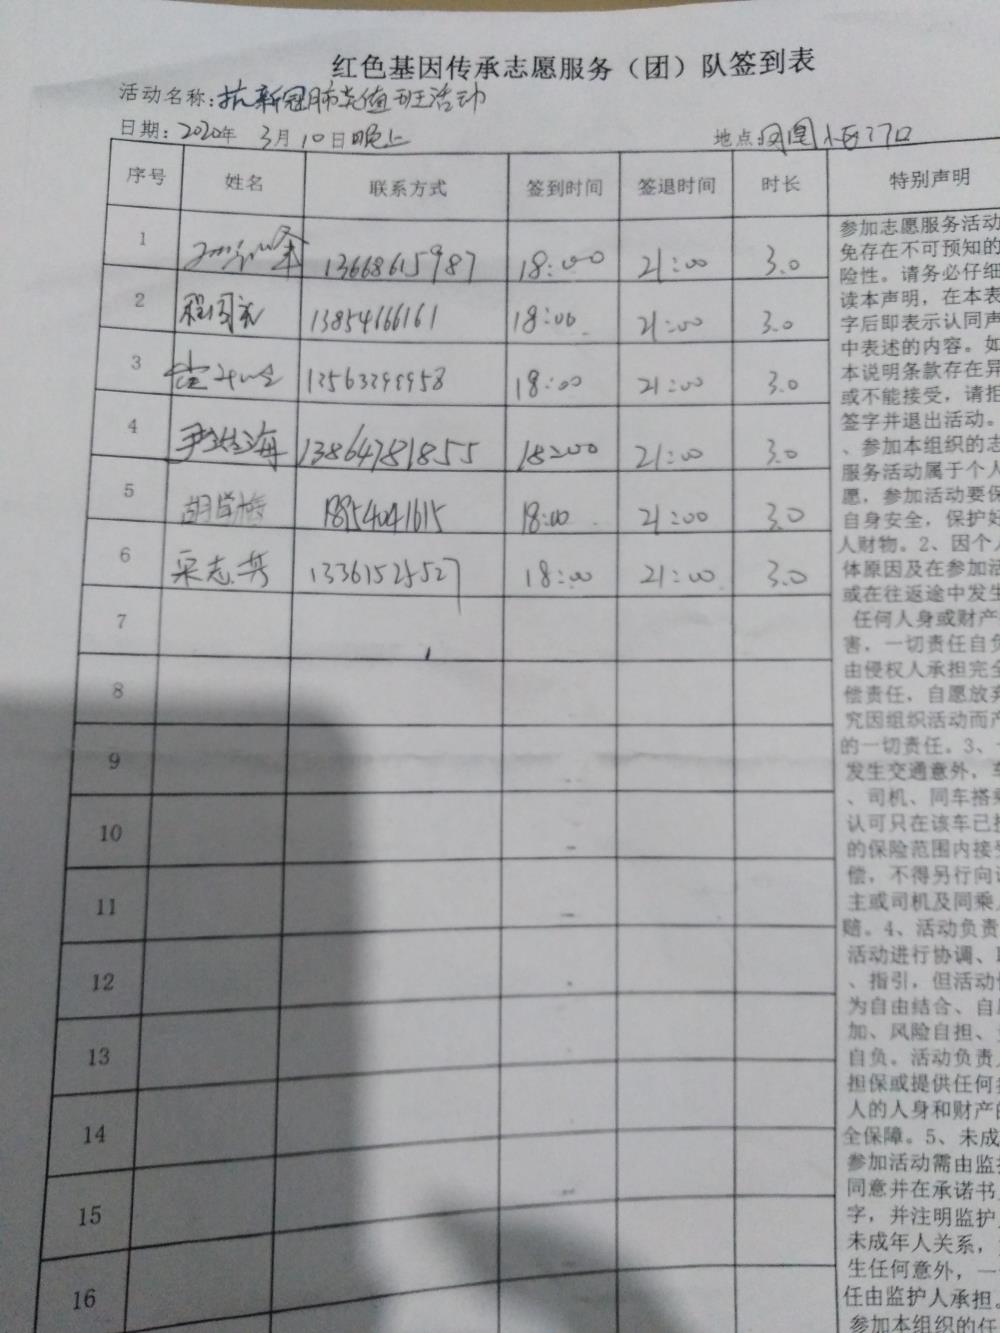 红色基因传承志愿服务（团）队签到表
活动名称：抗新冠肺炎值班活动
日期：2020年 3月10日晚上 地点：凤凰小区门口
序号 姓名 联系方式 签到时间 签退时间 时长 特别声明
1 13668615987 18:00 21:00 3.0
2 13854166161 18:00 21:00 3.0
3 18:00 21:00 3.0
4 13864781855 18:00 21:00 3.0
5 18854041615 18:00 21:00 3.0
6 18:00 21:00 3.0
7
8
9
10
11
12
13
14
15
16
参加志愿服务活动
免存在不可预知的
险性。请务必仔细
读本声明，在本表
字后即表示认同声
中表述的内容。如
本说明条款存在异
或不能接受，请拒
签字并退出活动。
、参加本组织的志
服务活动属于个人
愿，参加活动要保
自身安全，保护好
人财物。2、因个人
体原因及在参加活
或在往返途中发生
任何人身或财产
害，一切责任自负
由侵权人承担完全
偿责任，自愿放弃
究因组织活动而产
的一切责任。3、
发生交通意外，车
、司机、同车搭乘
认可只在该车已投
的保险范围内接受
偿，不得另行向
主或司机及同乘人
赔。4、活动负责
活动进行协调、联
、指引，但活动
为自由结合、自愿
加、风险自担、
自负。活动负责人
担保或提供任何
人的人身和财产的
全保障。5、未成
参加活动需由监护
同意并在承诺书
字，并注明监护
未成年人关系，
生任何意外，一
任由监护人承担。
参加本组织的任